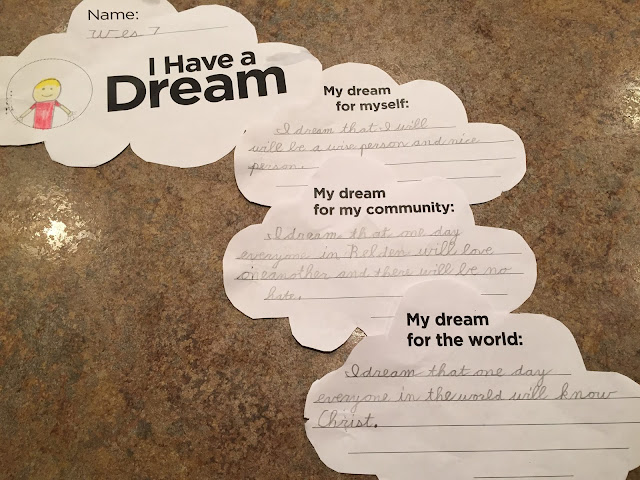 Name:
Wes 7
I Have a
Dream
My dream
for myself:
I dream that I will
will be a wise person and nice
person.
My dream
for my community:
I dream that one day
everyone in Belden will love
oneanother and there will be no
hate.
My dream
for the world:
I dream that one day
everyone in the world will know
Christ.